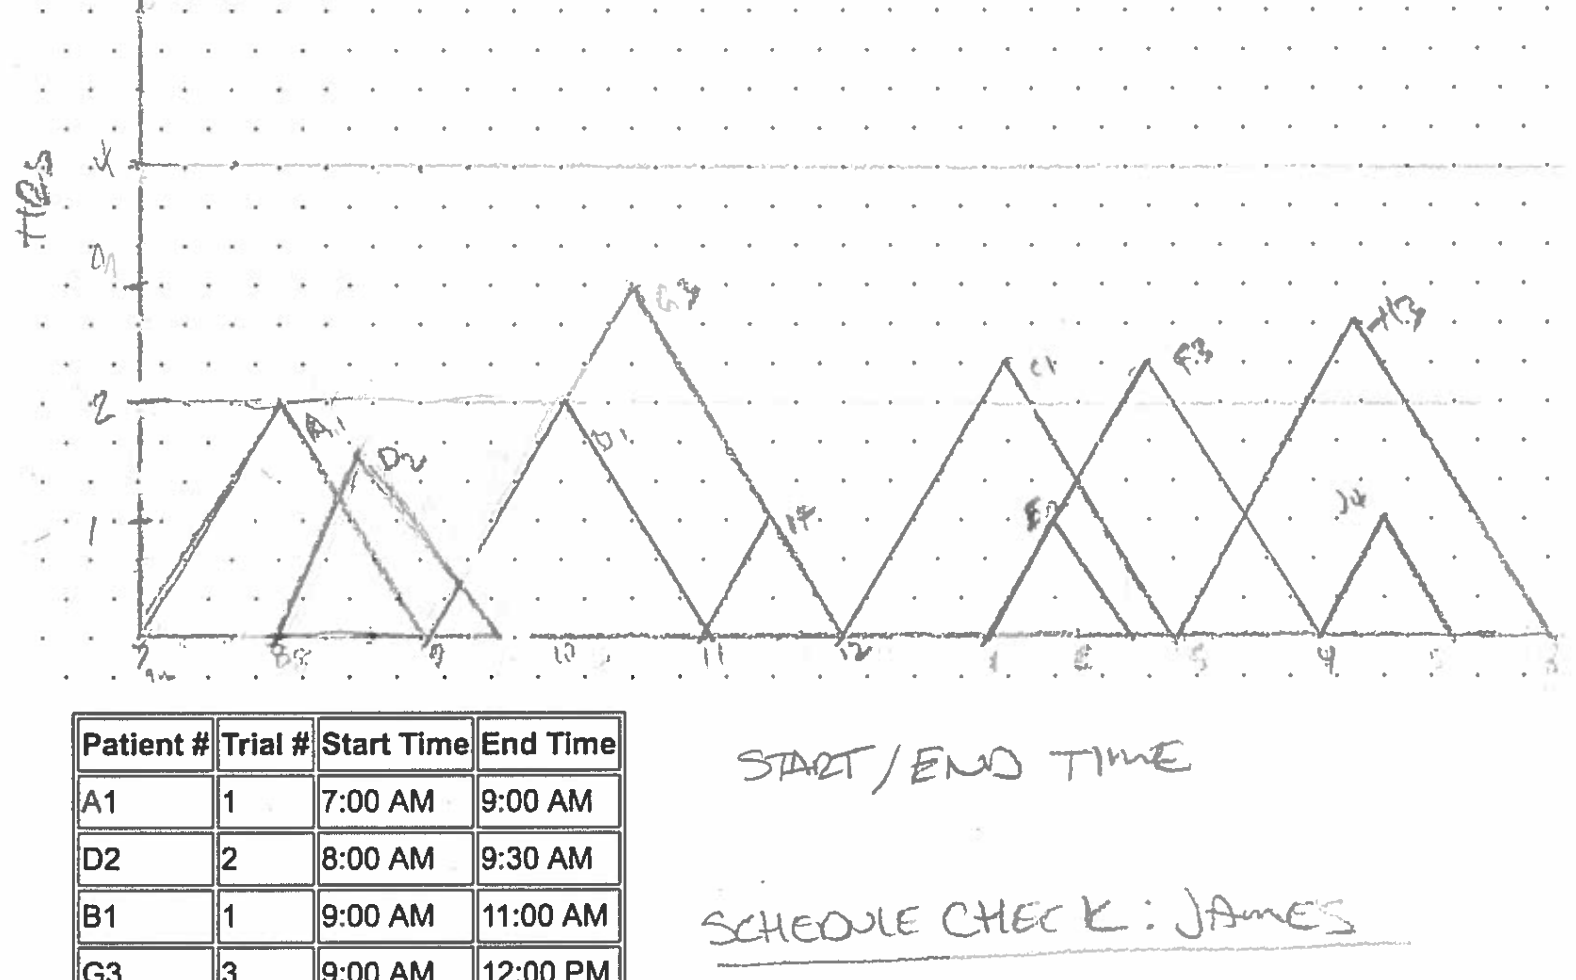 HRS
4
G3
H3
C1
F3
2
A1
B1
D2
1
E2
I4
J4
7
8
9
10
11
12
1
4
Patient # Trial # Start Time End Time
A1 1 7:00 AM 9:00 AM
D2 2 8:00 AM 9:30 AM
B1 1 9:00 AM 11:00 AM
G3 3 9:00 AM 12:00 PM
START/END TIME
SCHEDULE CHECK: JAMES